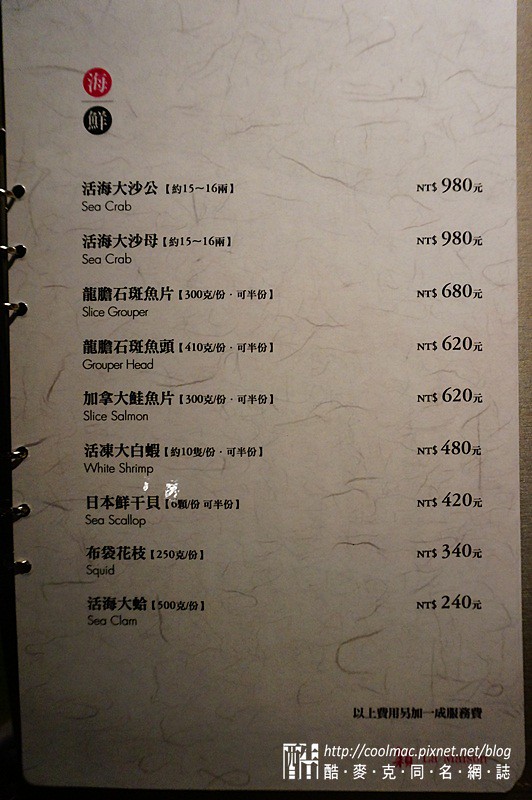 海
鮮
活海大沙公【約15～16兩】 NT$ 980元
Sea Crab
活海大沙母【約15～16兩】 NT$ 980元
Sea Crab
龍膽石斑魚片【300克/份．可半份】 NT$ 680元
Slice Grouper
龍膽石斑魚頭【410克/份．可半份】 NT$ 620元
Grouper Head
加拿大鮭魚片【300克/份．可半份】 NT$ 620元
Slice Salmon
活凍大白蝦【約10隻/份．可半份】 NT$ 480元
White Shrimp
日本鮮干貝【6顆/份 可半份】 NT$ 420元
Sea Scallop
布袋花枝【250克/份】 NT$ 340元
Squid
活海大蛤【500克/份】 NT$ 240元
Sea Clam
以上費用另加一成服務費
La Maison
http://coolmac.pixnet.net/blog
酷·麥·克·同·名·網·誌